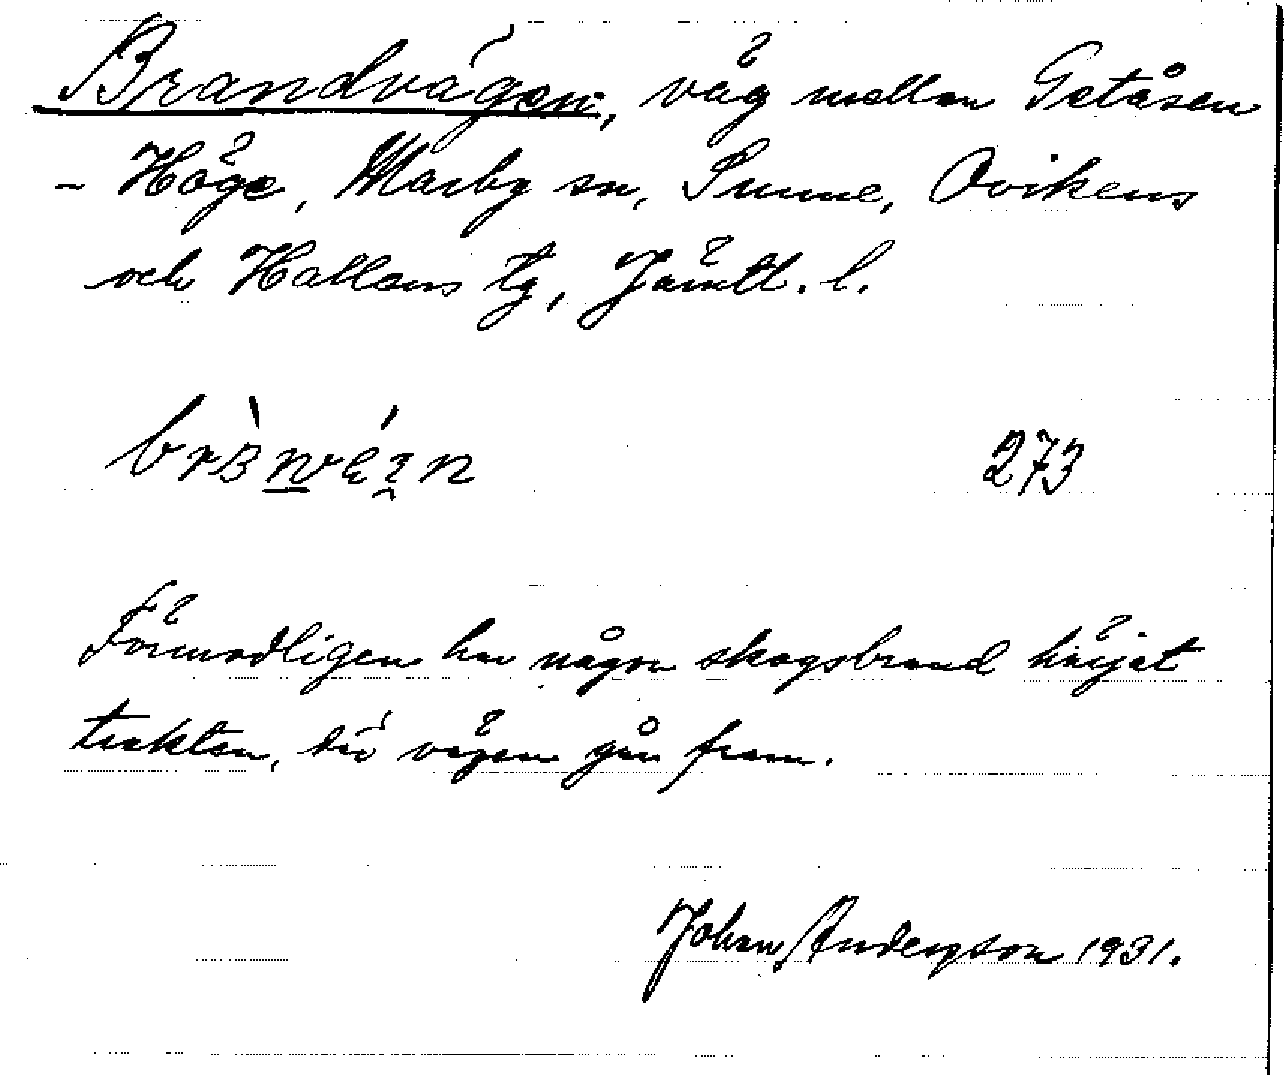 Brandvägen, väg mellan Getåsen
- Höge, Marby sn, Sunne, Ovikens
och Hallens tg, Jämtl. l.
273
Förmodligen har någon skogsbrand härjat
trakten, där vägen går fram.
Johan Andersson 1931.